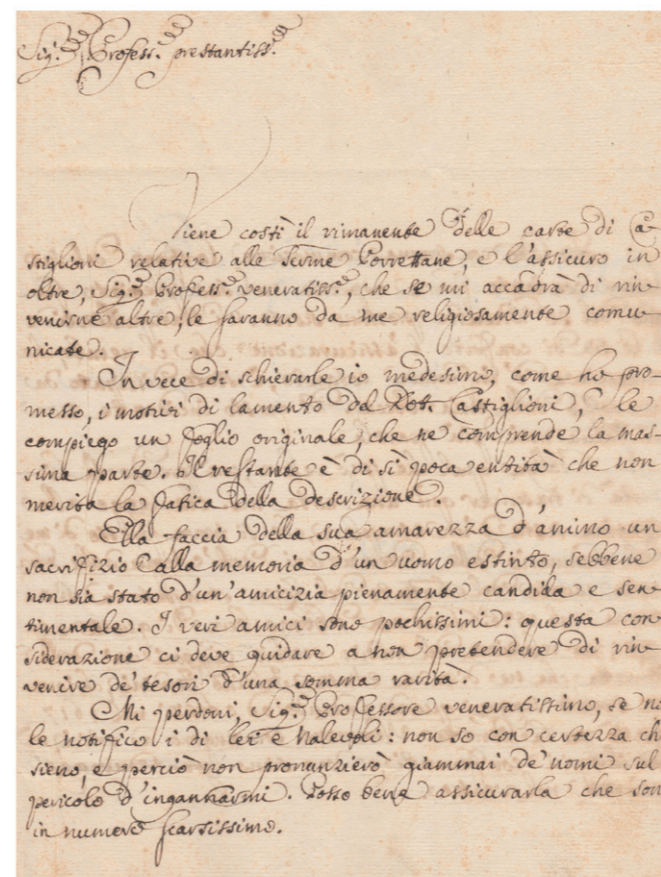 Sig.r Profess.r prestantiss.o
Viene costì il rimanente delle carte di Ca-
stiglioni relative alle Terme Porrettane, e l'assicuro in
oltre, Sig.r Profess.r veneratiss.o, che se mi accadrà di rin-
venirne altre, le saranno da me religiosamente comu-
nicate.
In vece di schierarle io medesimo, come ho pro-
messo, i motivi di lamento del Dot. Castiglioni, le
compiego un foglio originale, che ne comprende la mas-
sima parte. Il restante è di sì poca entità che non
merita la fatica della descrizione.
Ella faccia della sua amarezza d'animo un
sacrifizio alla memoria d'un uomo estinto, sebbene
non sia stato d'un'amicizia pienamente candida e sen-
timentale. I veri amici sono pochissimi: questa con
siderazione ci deve guidare a non pretendere di rin-
venire de' tesori d'una somma rarità.
Mi perdoni, Sig.r Professore veneratissimo, se no
le notifico i di lei Malevoli: non so con certezza ch
sieno, e perciò non pronunzierò giammai de' nomi sul
pericolo d'ingannarmi. Posso bene assicurarla che son
in numero scarsissimo.